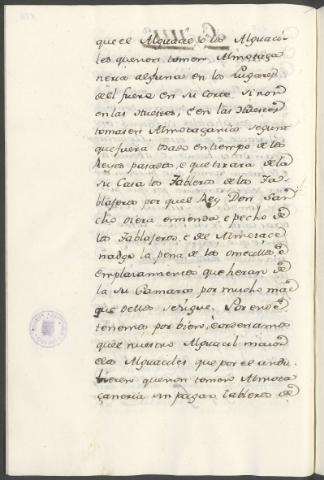 que el Alguacil o los Alguaci-
les que non tomen Almotaça
neria alguna en los Lugares
del fuera en su Corte. Si non
en las Huestes, e en las Huestes
tomasen Almotaçanias segunt
que fuera usado en tiempo de los
Reyes pasados, e que tirara de la
su Casa los Tableros de los Ta-
blajeros por que el Rey Don San
cho oviera enmienda, e pecho de
los Tablajeros, e del Almotace
nadgo la pena de los omecillos, e
emplazamientos que heran de
la su Camara por mucho mal
que dellos se sigue. Por ende
tenemos por bien, e ordenamos
que el nuestro Alguacil maior
e los Alguaciles que por el andu-
bieren que non tomen Almota
çaneria nin pagar tableros de